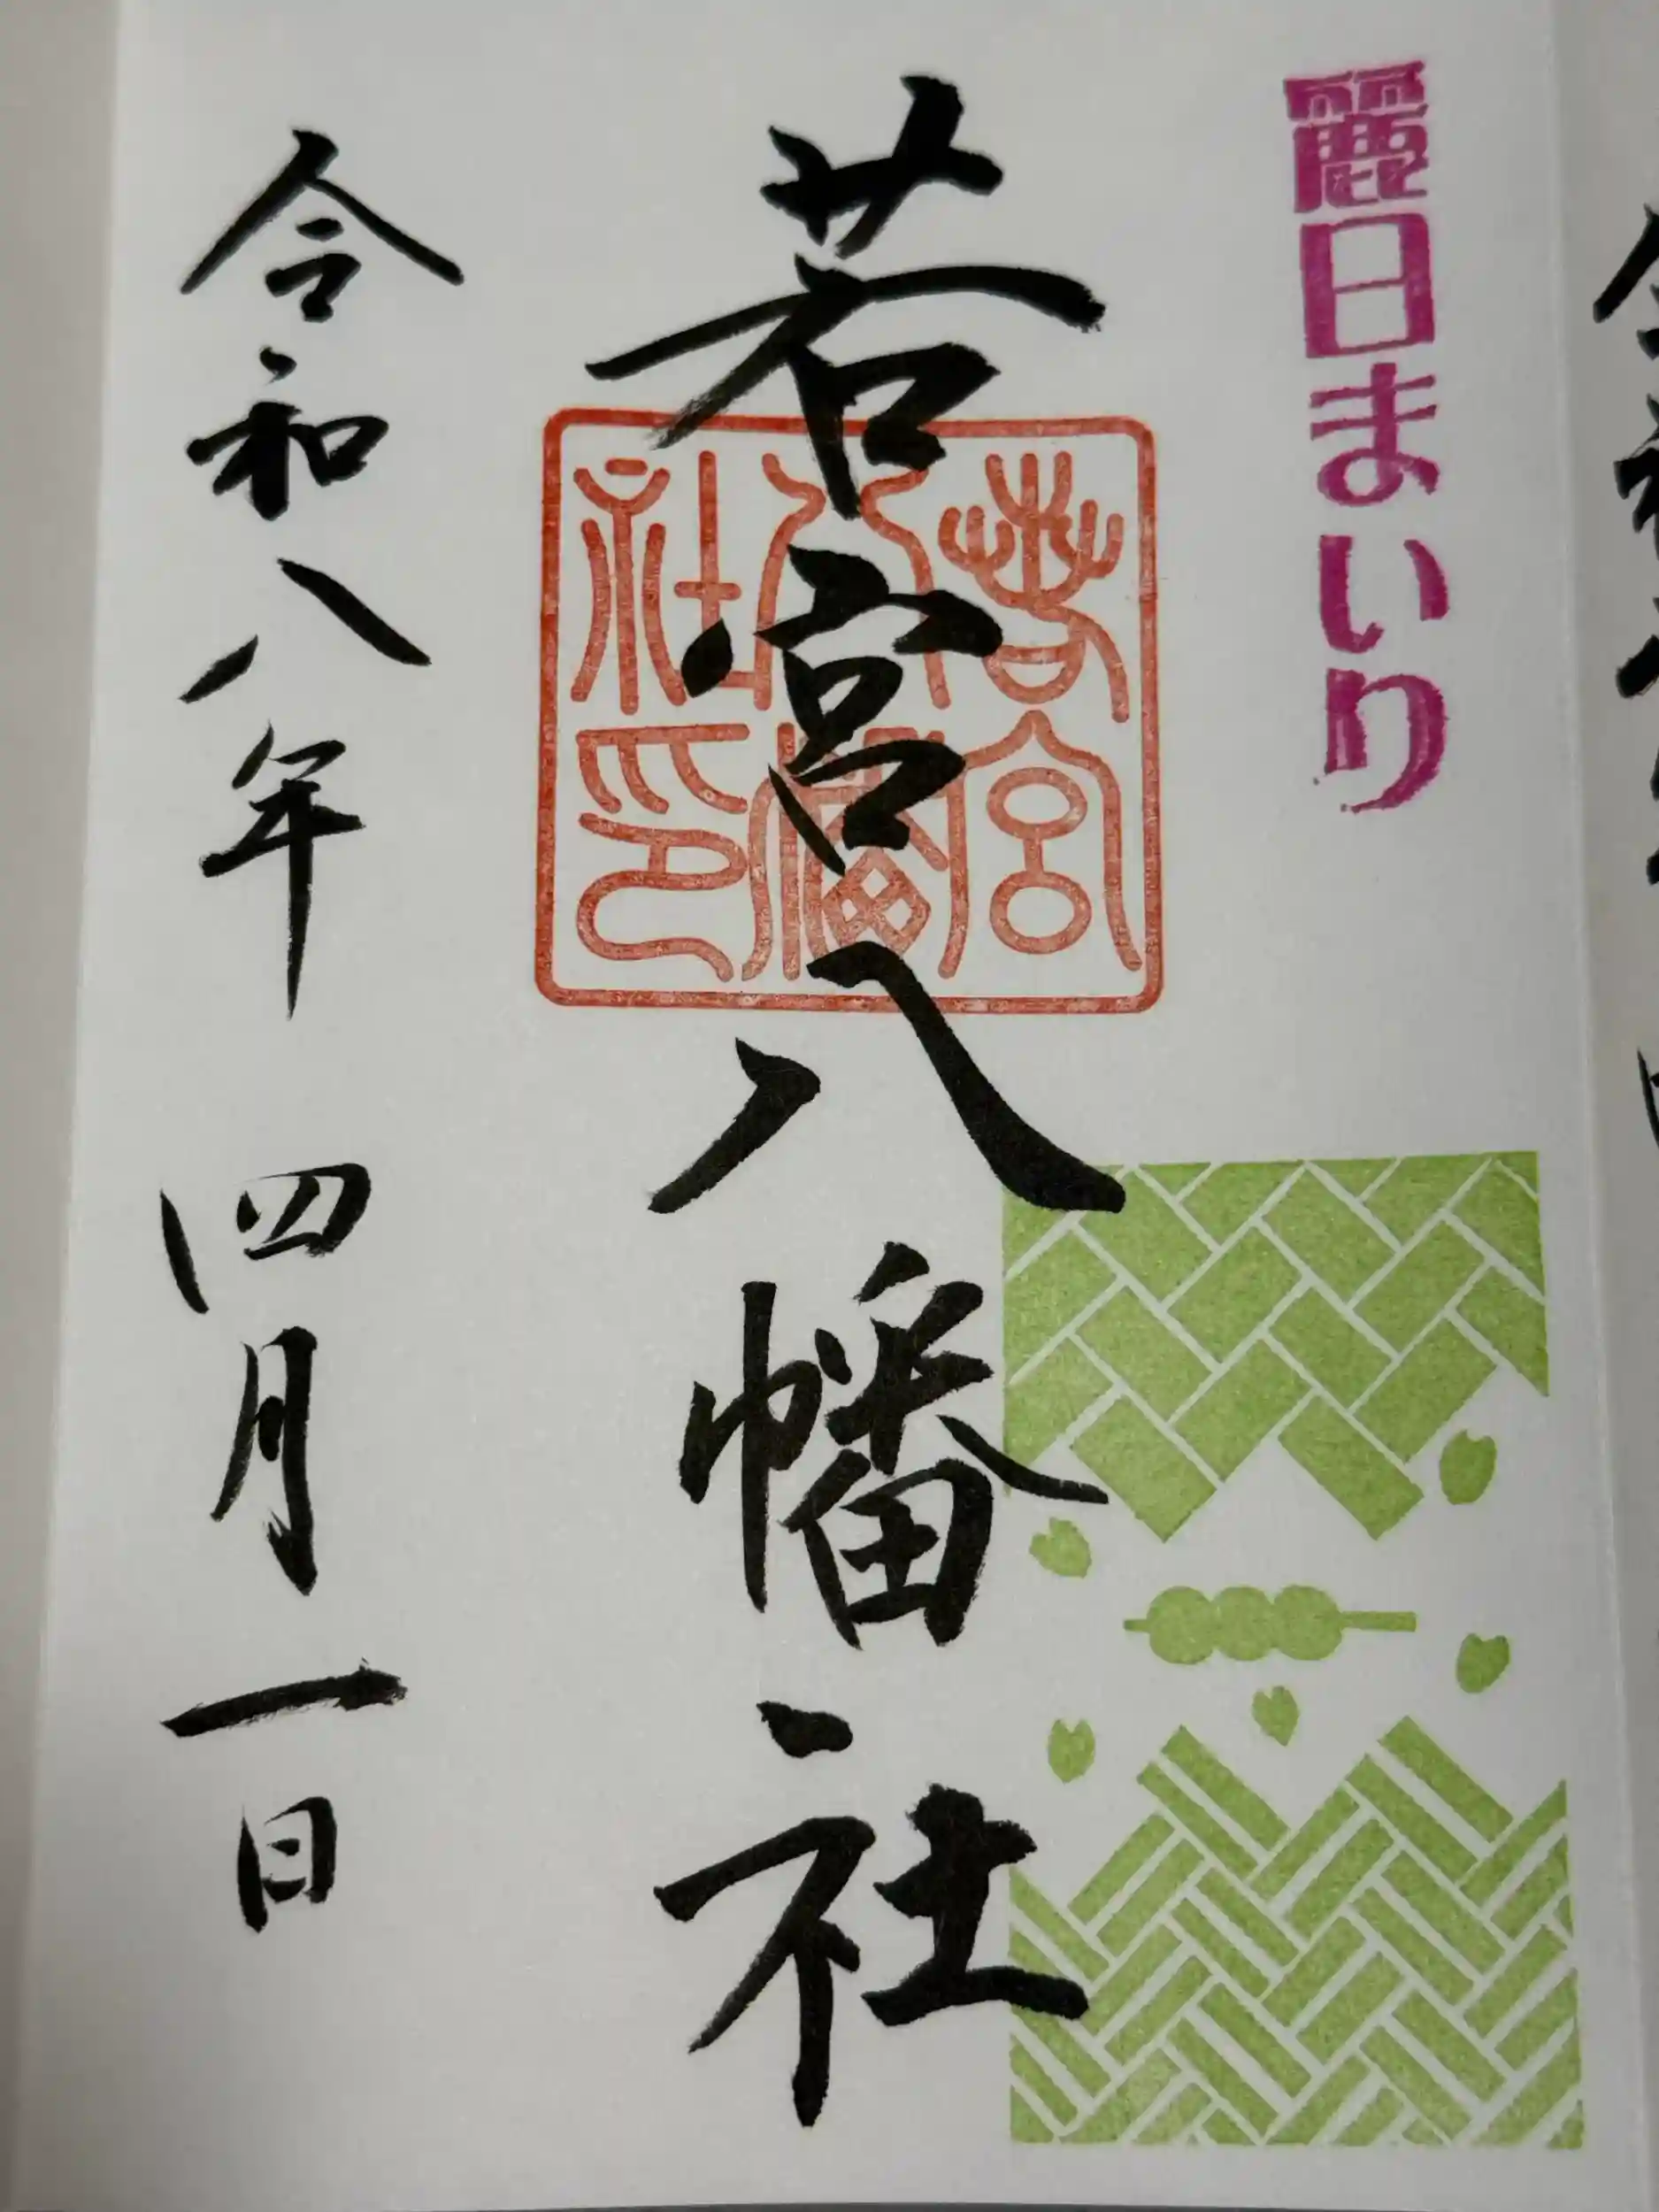 麗日まいり
若宮八幡社
若宮八幡社印
令和八年 四月一日